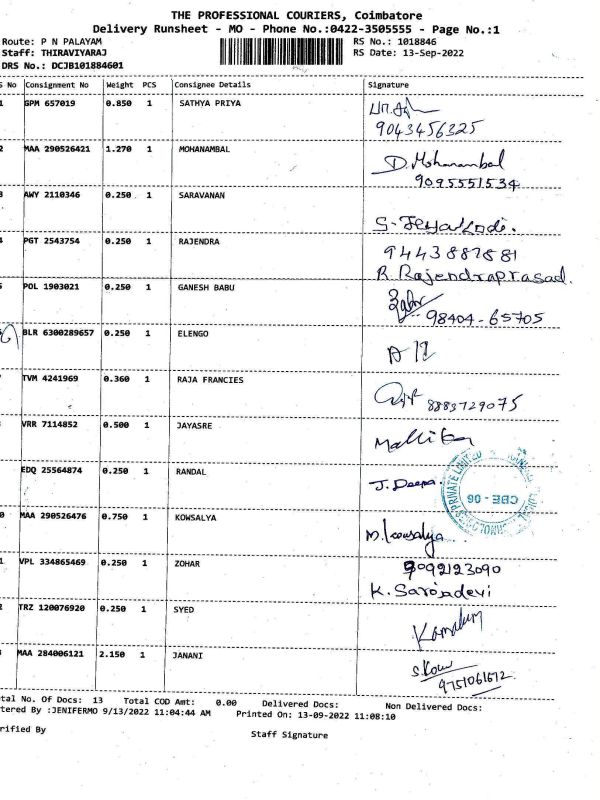 THE PROFESSIONAL COURIERS, Coimbatore
Delivery Runsheet - MO - Phone No.:0422-3505555 - Page No.:1
Route: P N PALAYAM
RS No.: 1018846
Staff: THIRAVIYARAJ
RS Date: 13-Sep-2022
DRS No.: DCJB101884601
S No Consignment No Weight PCS Consignee Details Signature
1 GPM 657019 0.850 1 SATHYA PRIYA
9043456325
2 MAA 290526421 1.270 1 MOHANAMBAL D. Mohanambal
9095551534
3 AWY 2110346 0.250 1 SARAVANAN
4 PGT 2543754 0.250 1 RAJENDRA 9443887881
R. Rajendraprasad.
5 POL 1903021 0.250 1 GANESH BABU
98404-65705
BLR 6300289657 0.250 1 ELENGO
TVM 4241969 0.360 1 RAJA FRANCIES
8883729075
VRR 7114852 0.500 1 JAYASRE
Mallika
EDQ 25564874 0.250 1 RANDAL J. Deepa.
PRIVATE LIMITED
CBE - 06
0 MAA 290526476 0.750 1 KOWSALYA
M. Kowsalya
1 VPL 334865469 0.250 1 ZOHAR 9092123090
K. Sarojadevi
2 TRZ 120076920 0.250 1 SYED
MAA 284006121 2.150 1 JANANI
9751061672
tal No. Of Docs: 13 Total COD Amt: 0.00 Delivered Docs: Non Delivered Docs:
tered By :JENIFERMO 9/13/2022 11:04:44 AM Printed On: 13-09-2022 11:08:10
rified By
Staff Signature